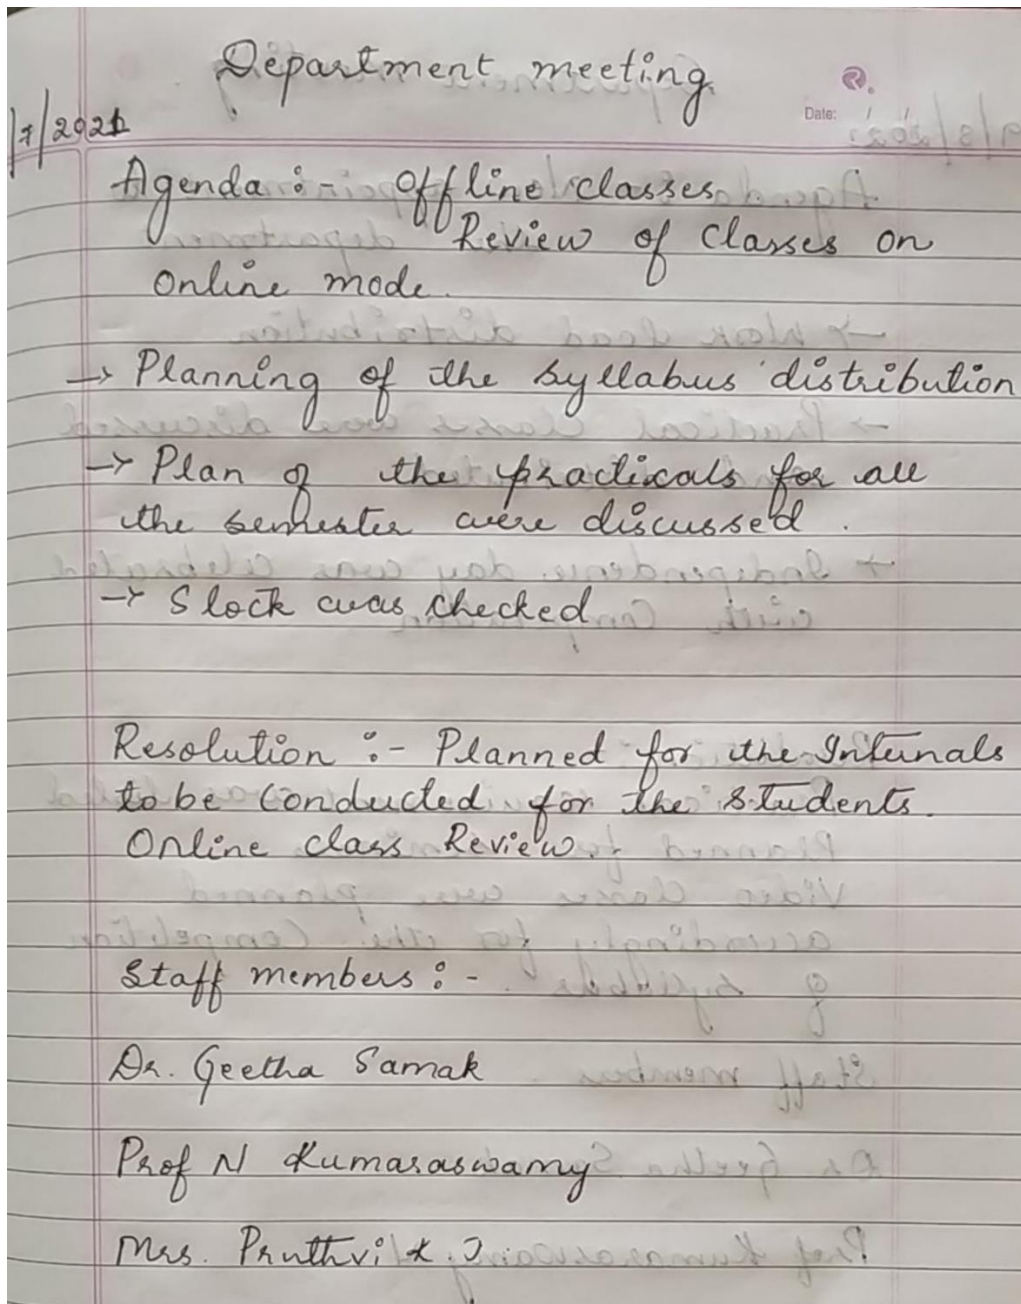 Department meeting
Date: / /
/7/2021
Agenda :- Offline classes
Review of Classes on
Online mode.
→ Planning of the syllabus distribution
→ Plan of the practicals for all
the semester were discussed.
→ Stock was checked
Resolution :- Planned for the Internals
to be Conducted for the Students.
Online class Review.
Staff members :-
Dr. Geetha Samak
Prof N Kumaraswamy
Mrs. Pruthvi